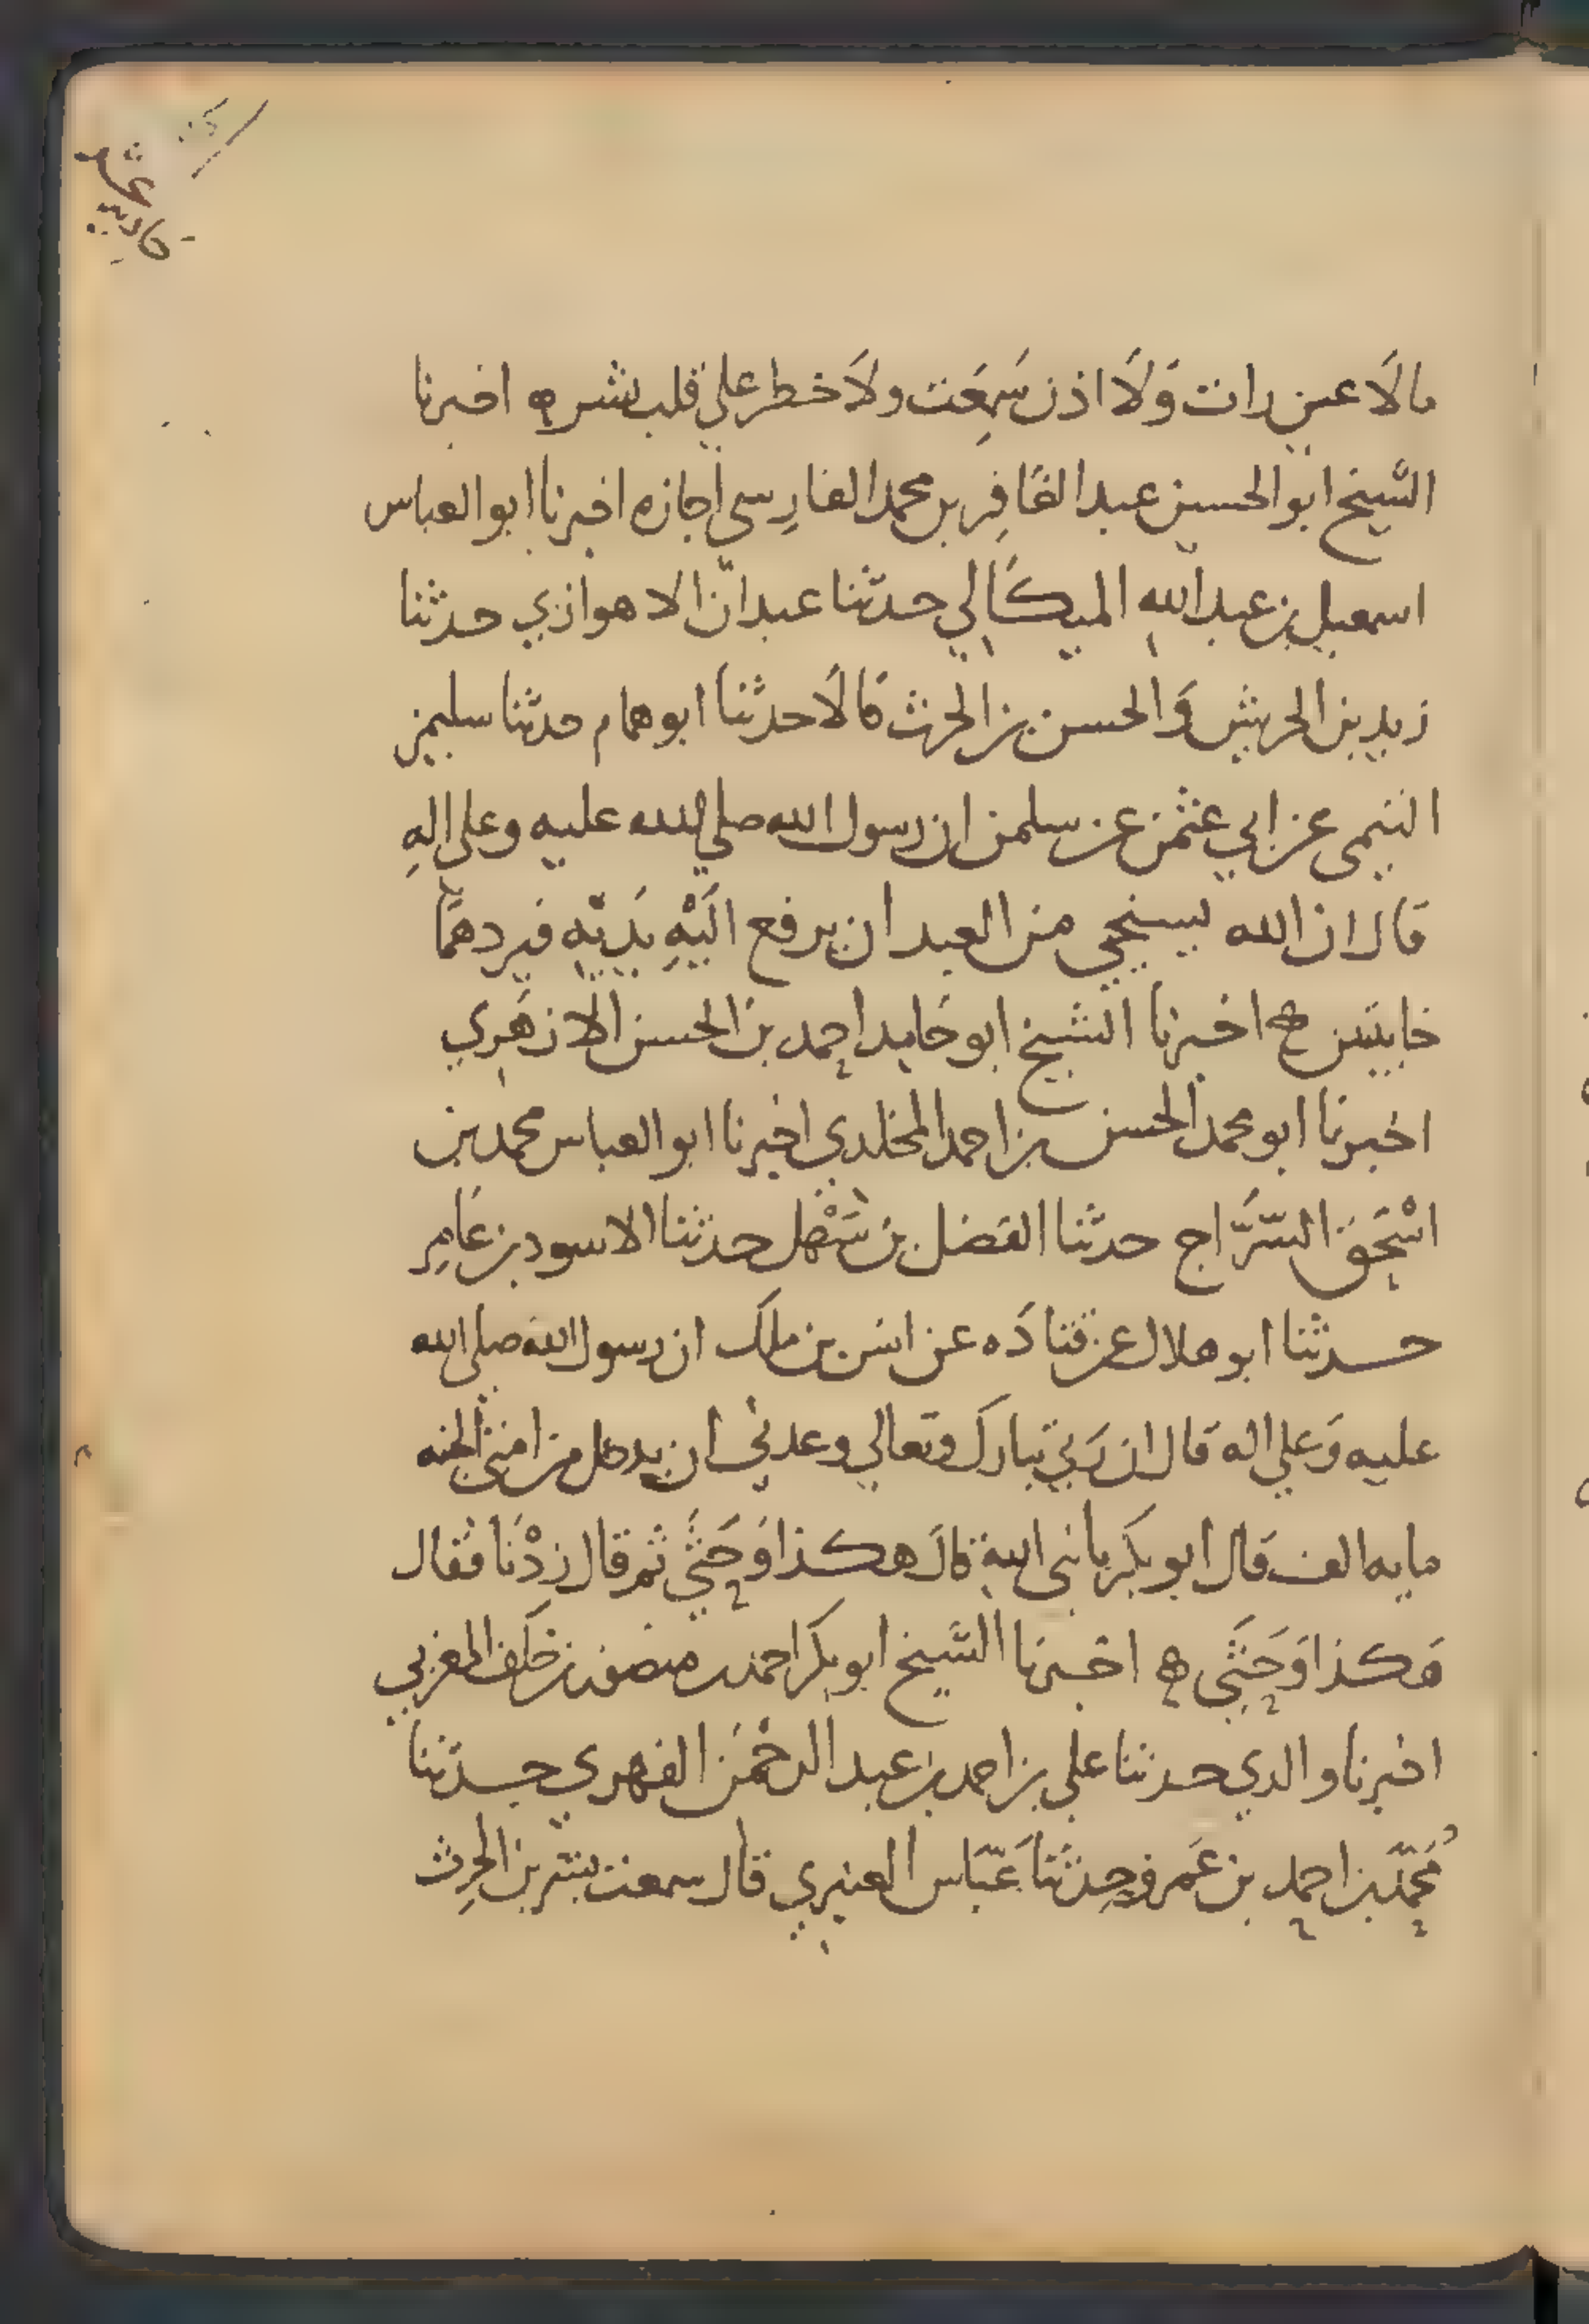 مالا عين رات وَلَا اذن سَمِعَت ولَا خطر علي قلب بشر ه اخبرنا
الشيخ ابو الحسين عبد الغَافِر بن محمد الفارِسي اجازه اخبرنا ابو العباس
اسمعيل بن عبد الله الميكَالي حدثنا عبدان الاهوازي حدثنا
زيد بن الحريش وَالحسن بن الحرث قَالَا حدثنا ابو همام حدثنا سليمن
التيمي عن ابي عثمن عن سلمن ان رسول الله صلي الله عليه وعلى الهِ
قَال ان الله ليستحيي من العبد ان يرفع اليْهِ يَديْهِ فيردهمَا
خايبتين ه اخبرنا الشيخ ابو حَامِد احمد بن الحسن الازهَري
اخبرنا ابو محمد الحسن بن احمد المخلدي اخبرنا ابو العباس محمد بن
اسْحَق السَّرَّاج حدثنا الفضل بن سَهْل حدثنا الاسود بن عَامِر
حدثنا ابو هلال عن قتادَه عن انس بن ملك ان رسول الله صلى الله
عليه وَعلي اله قَال ان رَبي تبارك وتَعالي وعدني ان يدخل من امتي الجنه
مايه الف قَال ابو بكر يا نبي الله قَالَ هكذا وَحَثَي ثم قال زِدْنَا فقال
هَكذا وَحَثَي ه اخبرنا الشيخ ابو بكر احمد بن منصور بن خَلَف المغربي
اخبرنا والدي حدثنا علي بن احمد بن عبد الرحْمَن الفهري حدثنا
مُحَمّد بن احمد بن عَمرو حدثنَا عَبّاس العنبري قال سمعت بشر بن الحرِث